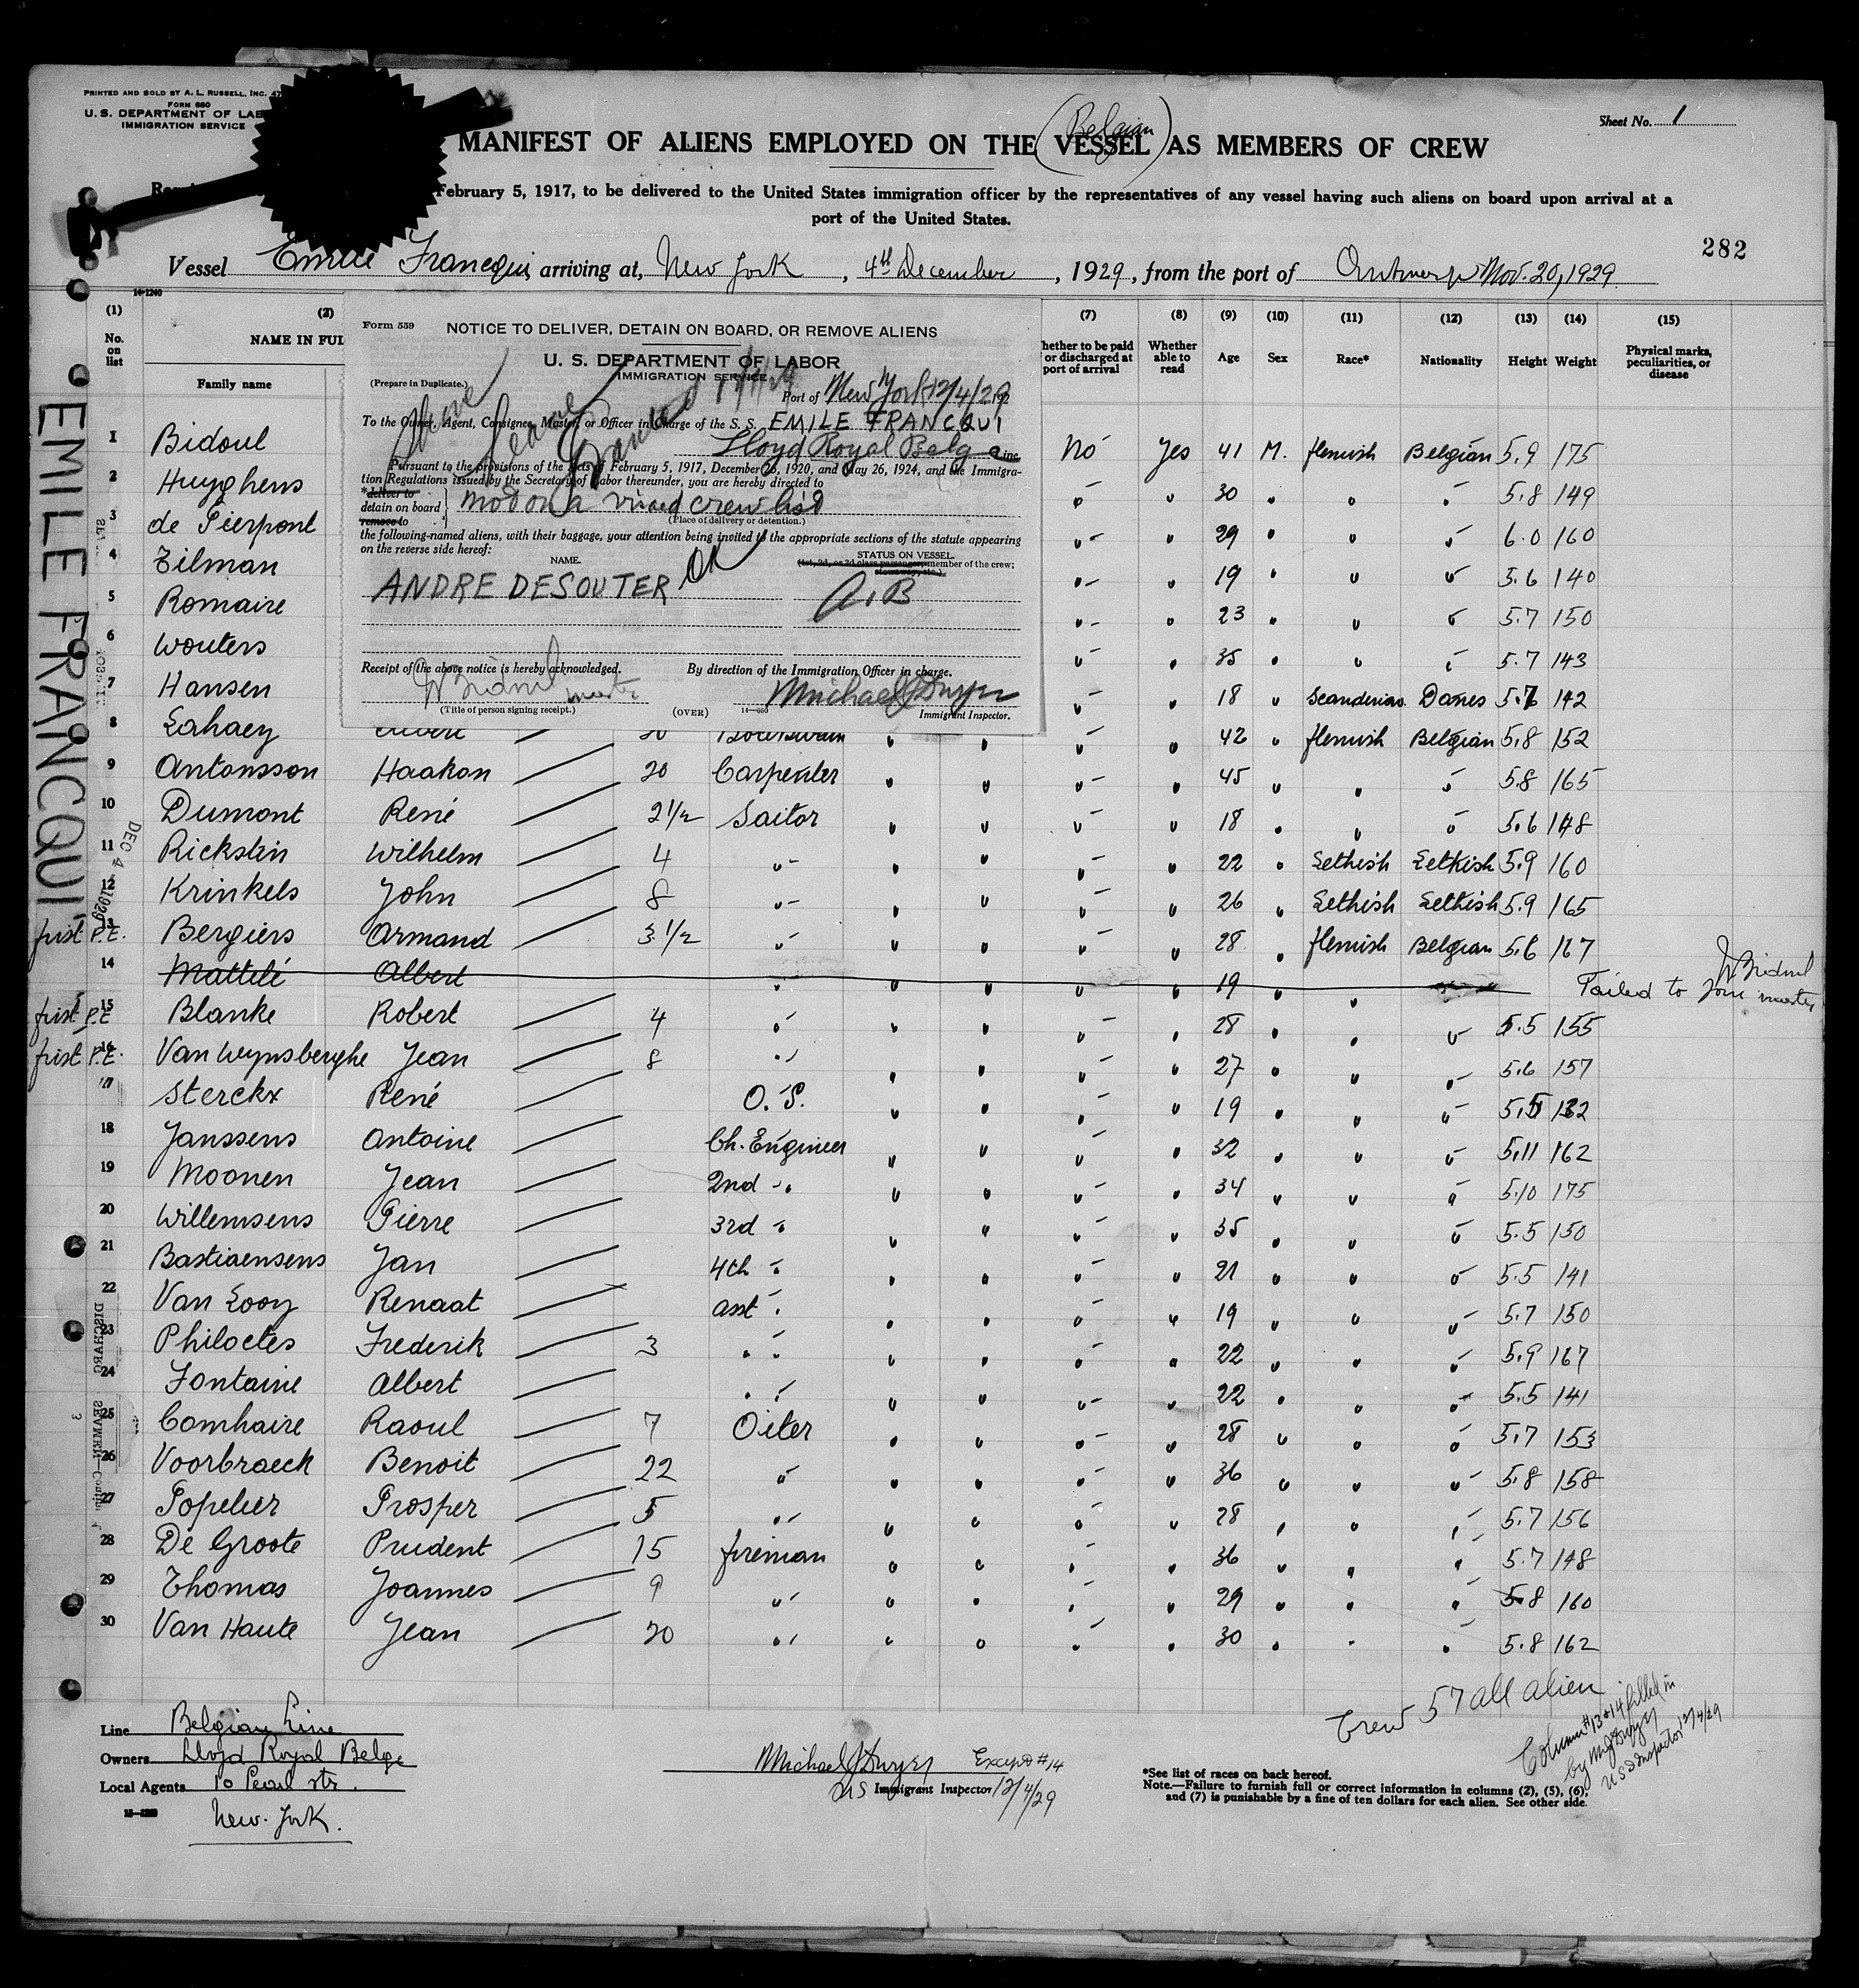 PRINTED AND SOLD BY A. L. RUSSELL, INC.
FORM 680
U. S. DEPARTMENT OF LAB
IMMIGRATION SERVICE
Sheet No. 1
(Belgian)
MANIFEST OF ALIENS EMPLOYED ON THE VESSEL AS MEMBERS OF CREW
February 5, 1917, to be delivered to the United States immigration officer by the representatives of any vessel having such aliens on board upon arrival at a
port of the United States.
282
Vessel Emile Francqui, arriving at, New York, 4th December, 1929, from the port of Antwerp Nov. 20, 1929
14-1240
(1) (2) (7) (8) (9) (10) (11) (12) (13) (14) (15)
No. on list
NAME IN FUL
Family name
hether to be paid or discharged at port of arrival
Whether able to read
Age Sex Race* Nationality Height Weight
Physical marks, peculiarities, or disease
Form 559
NOTICE TO DELIVER, DETAIN ON BOARD, OR REMOVE ALIENS
U. S. DEPARTMENT OF LABOR
IMMIGRATION SERVICE
(Prepare in Duplicate.)
Port of New York 12/4/29 192
Shore leave Granted
To the Owner, Agent, Consignee, Master, or Officer in Charge of the S. S. EMILE FRANCQUI
Lloyd Royal Belge Line
Pursuant to the provisions of the Acts of February 5, 1917, December 26, 1920, and May 26, 1924, and the Immigra-
tion Regulations issued by the Secretary of Labor thereunder, you are hereby directed to
*deliver to
detain on board
remove to
not on a visaed crew list
(Place of delivery or detention.)
the following-named aliens, with their baggage, your attention being invited to the appropriate sections of the statute appearing
on the reverse side hereof:
NAME.
STATUS ON VESSEL.
(1st, 2d, or 3d class passenger; member of the crew; stowaway, etc.)
ANDRE DESOUTER OK A.B
Receipt of the above notice is hereby acknowledged.
By direction of the Immigration Officer in charge.
Bidoul master
Michael J Dwyer
(Title of person signing receipt.)
(OVER)
14—660
Immigrant Inspector.
EMILE FRANCQUI
DEC 4 1929
1 Bidoul No Yes 41 M. flemish Belgian 5.9 175
2 Huyghens " " 30 " " " 5.8 149
3 de Pierpont " " 29 " " " 6.0 160
4 Tilman " " 19 " " " 5.6 140
5 Romaire " " 23 " " " 5.7 150
6 Wouters " " 35 " " " 5.7 143
7 Hansen " " 18 " Scandinav. Danes 5.7 142
8 Lahaey Albert 30 Boatswain " " " " 42 " flemish Belgian 5.8 152
9 Antonsson Haakon 20 Carpenter " " " " 45 " " " 5.8 165
10 Dumont René 2 1/2 Sailor " " " " 18 " " " 5.6 148
11 Rickstin Wilhelm 4 " " " " " 22 " Lethish Letkish 5.9 160
12 Krinkels John 8 " " " " " 26 " Lethish Letkish 5.9 165
first P.E. 13 Bergiers Armand 3 1/2 " " " " " 28 " flemish Belgian 5.6 167
14 Mattelé Albert " " " " " 19 " " Failed to join Bidoul master
first P.E 15 Blanke Robert 4 " " " " " 28 " " " 5.5 155
first P.E. 16 Van Wynsberghe Jean 8 " " " " " 27 " " " 5.6 157
17 Sterckx René O. S. " " " " 19 " " " 5.5 132
18 Janssens Antoine Ch. Engineer " " " " 32 " " " 5.11 162
19 Moonen Jean 2nd " " " " " 34 " " " 5.10 175
20 Willemsens Pierre 3rd " " " " " 35 " " " 5.5 150
21 Bastiaensens Jan 4th " " " " " 21 " " " 5.5 141
22 Van Looy Renaat asst " " " " " 19 " " " 5.7 150
23 Philoctes Frederik 3 " " " " " " 22 " " " 5.9 167
24 Fontaine Albert " " " " " " 22 " " " 5.5 141
25 Comhaire Raoul 7 Oiler " " " " 28 " " " 5.7 153
26 Voorbraeck Benoit 22 " " " " " 36 " " " 5.8 158
27 Popelier Prosper 5 " " " " " 28 " " " 5.7 156
28 De Groote Prudent 15 fireman " " " " 36 " " " 5.7 148
29 Thomas Joannes 9 " " " " " 29 " " " 5.8 160
30 Van Haute Jean 20 " " " " " 30 " " " 5.8 162
Crew 57 all alien
Column #13+14 filled in
by M J Dwyer
U S Inspector 12/4/29
Line Belgian Line
Owners Lloyd Royal Belge
Local Agents 10 Pearl str.
New-York.
Michael J Dwyer Except #14
US Immigrant Inspector 12/4/29
*See list of races on back hereof.
Note.—Failure to furnish full or correct information in columns (2), (5), (6),
and (7) is punishable by a fine of ten dollars for each alien. See other side.